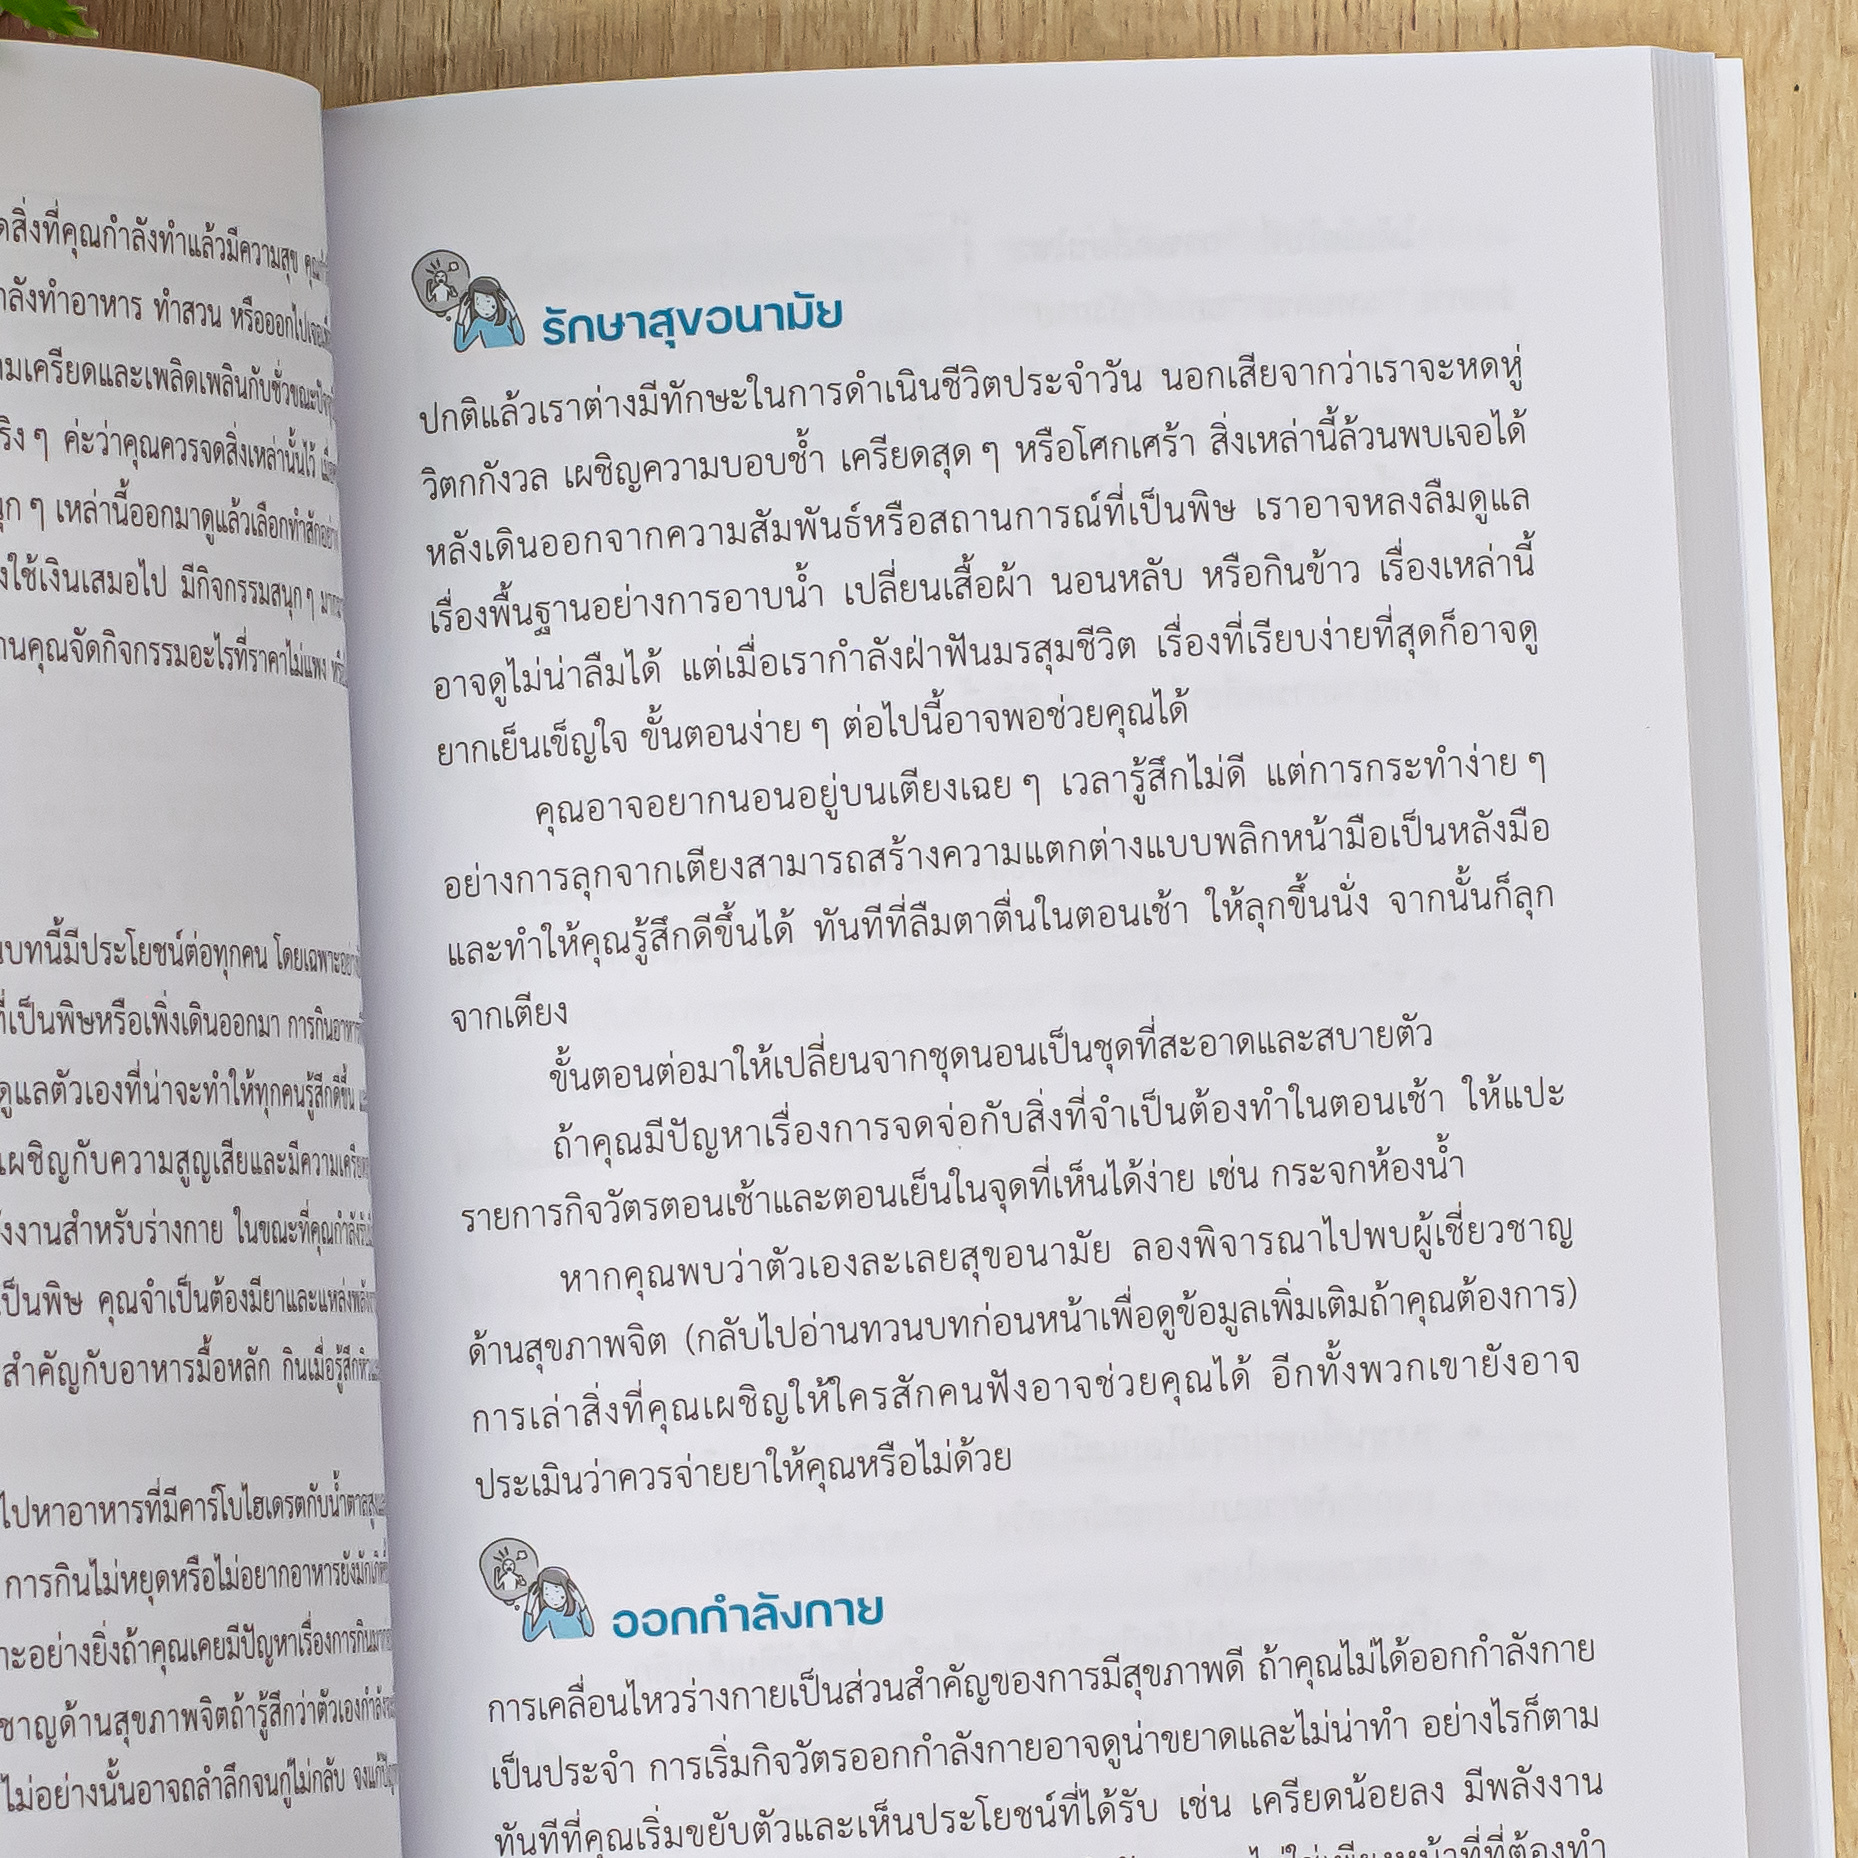 สิ่งที่คุณกำลังทำแล้วมีความสุข
ทำอาหาร ทำสวน หรือออกไปเจอ
เครียดและเพลิดเพลินกับชั่วขณะ
ๆ ค่ะว่าคุณควรจดสิ่งเหล่านั้นไว้
ๆ เหล่านี้ออกมาดูแล้วเลือกทำสักอย่าง
ใช้เงินเสมอไป มีกิจกรรมสนุก ๆ
คุณจัดกิจกรรมอะไรที่ราคาไม่แพง
บทนี้มีประโยชน์ต่อทุกคน โดยเฉพาะ
ที่เป็นพิษหรือเพิ่งเดินออกมา การกินอาหาร
ดูแลตัวเองที่น่าจะทำให้ทุกคนรู้สึกดีขึ้น
เผชิญกับความสูญเสียและมีความเครียด
งานสำหรับร่างกาย ในขณะที่คุณกำลัง
เป็นพิษ คุณจำเป็นต้องมียาและแหล่ง
สำคัญกับอาหารมื้อหลัก กินเมื่อรู้สึกหิว
ไปหาอาหารที่มีคาร์โบไฮเดรตกับน้ำตาลสูง
การกินไม่หยุดหรือไม่อยากอาหารยังมัก
อย่างยิ่งถ้าคุณเคยมีปัญหาเรื่องการกิน
ชาญด้านสุขภาพจิตถ้ารู้สึกว่าตัวเองกำลัง
ไม่อย่างนั้นอาจถลำลึกจนกู่ไม่กลับ
รักษาสุขอนามัย
ปกติแล้วเราต่างมีทักษะในการดำเนินชีวิตประจำวัน นอกเสียจากว่าเราจะหดหู่
วิตกกังวล เผชิญความบอบช้ำ เครียดสุด ๆ หรือโศกเศร้า สิ่งเหล่านี้ล้วนพบเจอได้
หลังเดินออกจากความสัมพันธ์หรือสถานการณ์ที่เป็นพิษ เราอาจหลงลืมดูแล
เรื่องพื้นฐานอย่างการอาบน้ำ เปลี่ยนเสื้อผ้า นอนหลับ หรือกินข้าว เรื่องเหล่านี้
อาจดูไม่น่าลืมได้ แต่เมื่อเรากำลังฝ่าฟันมรสุมชีวิต เรื่องที่เรียบง่ายที่สุดก็อาจดู
ยากเย็นเข็ญใจ ขั้นตอนง่าย ๆ ต่อไปนี้อาจพอช่วยคุณได้
คุณอาจอยากนอนอยู่บนเตียงเฉย ๆ เวลารู้สึกไม่ดี แต่การกระทำง่าย ๆ
อย่างการลุกจากเตียงสามารถสร้างความแตกต่างแบบพลิกหน้ามือเป็นหลังมือ
และทำให้คุณรู้สึกดีขึ้นได้ ทันทีที่ลืมตาตื่นในตอนเช้า ให้ลุกขึ้นนั่ง จากนั้นก็ลุก
จากเตียง
ขั้นตอนต่อมาให้เปลี่ยนจากชุดนอนเป็นชุดที่สะอาดและสบายตัว
ถ้าคุณมีปัญหาเรื่องการจดจ่อกับสิ่งที่จำเป็นต้องทำในตอนเช้า ให้แปะ
รายการกิจวัตรตอนเช้าและตอนเย็นในจุดที่เห็นได้ง่าย เช่น กระจกห้องน้ำ
หากคุณพบว่าตัวเองละเลยสุขอนามัย ลองพิจารณาไปพบผู้เชี่ยวชาญ
ด้านสุขภาพจิต (กลับไปอ่านทวนบทก่อนหน้าเพื่อดูข้อมูลเพิ่มเติมถ้าคุณต้องการ)
การเล่าสิ่งที่คุณเผชิญให้ใครสักคนฟังอาจช่วยคุณได้ อีกทั้งพวกเขายังอาจ
ประเมินว่าควรจ่ายยาให้คุณหรือไม่ด้วย
ออกกำลังกาย
การเคลื่อนไหวร่างกายเป็นส่วนสำคัญของการมีสุขภาพดี ถ้าคุณไม่ได้ออกกำลังกาย
เป็นประจำ การเริ่มกิจวัตรออกกำลังกายอาจดูน่าขยาดและไม่น่าทำ อย่างไรก็ตาม
ทันทีที่คุณเริ่มขยับตัวและเห็นประโยชน์ที่ได้รับ เช่น เครียดน้อยลง มีพลังงาน
ไม่ใช่เพียงหน้าที่ที่ต้องทำ